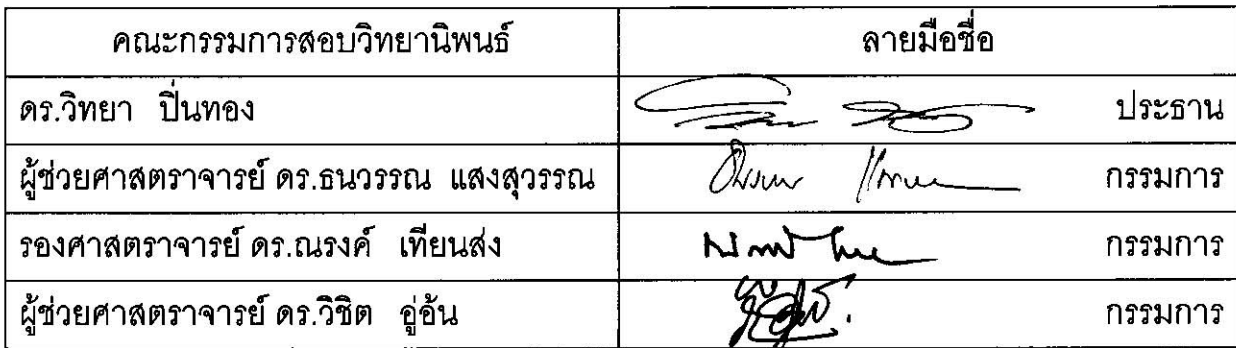 คณะกรรมการสอบวิทยานิพนธ์ ลายมือชื่อ
ดร.วิทยา ปิ่นทอง ประธาน
ผู้ช่วยศาสตราจารย์ ดร.ธนวรรณ แสงสุวรรณ กรรมการ
รองศาสตราจารย์ ดร.ณรงค์ เทียนส่ง กรรมการ
ผู้ช่วยศาสตราจารย์ ดร.วิชิต อู่อ้น กรรมการ